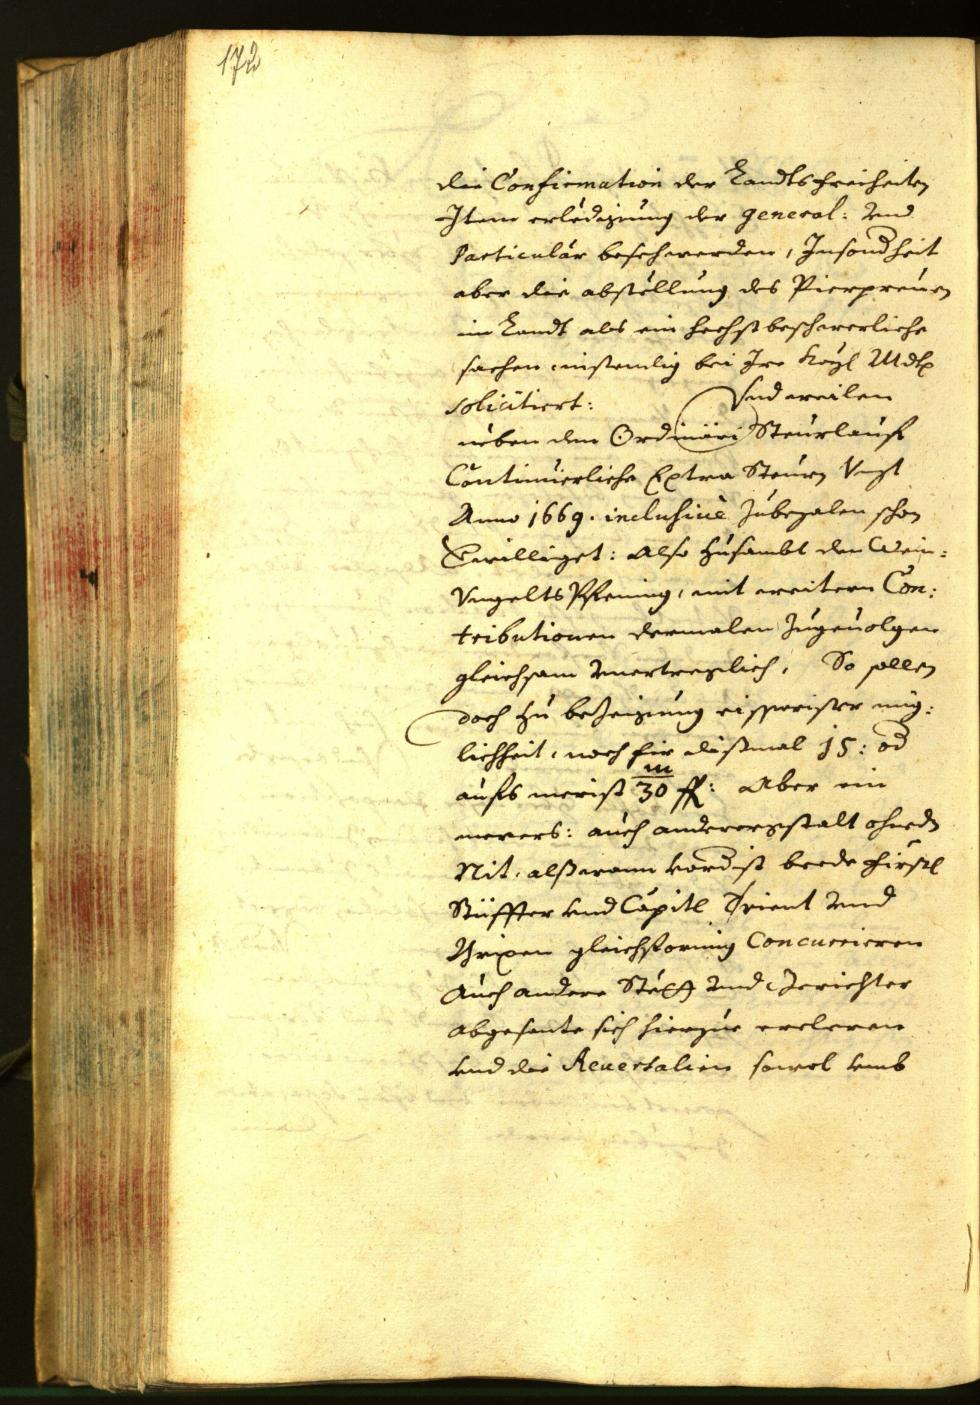 172
die Confirmation der Landtsfreiheiten
Item erledigung der general: vnd
Particulär beschwerden, Insondheit
aber die abstellung des Pierpreuen
im Landt als ein hechst beschwerliche
sachen instendig bei Irr Kayl Maytt
solicitiert:
Vnd weilen
neben dem Ordinäri Steurlauff
Continuierliche Extra Steuren
Anno 1669. inclusiue zubezalen schon
bewilliget: Also zusambt den Wein-
Vmgelts Pfening, mit weitern Con:
tributionen dermalen zugeuolgen
gleichsam vnertreglich, So sollen
doch zu bezeigung eisserister mig:
lichkeit, noch fir dißmal 15: od
aufs meiste 30 m/ fl: Aber ein
merers: auch andrergestalt
Nit, alß wann vordist beede Firstl
Stüffter vnd Capitl Trient vnd
Brixen gleichformig Concurrieren
Auch andere Stött vnd Gerichter
abgesante sich hierzue ercleren
vnd die Reuersalien sowol vmb